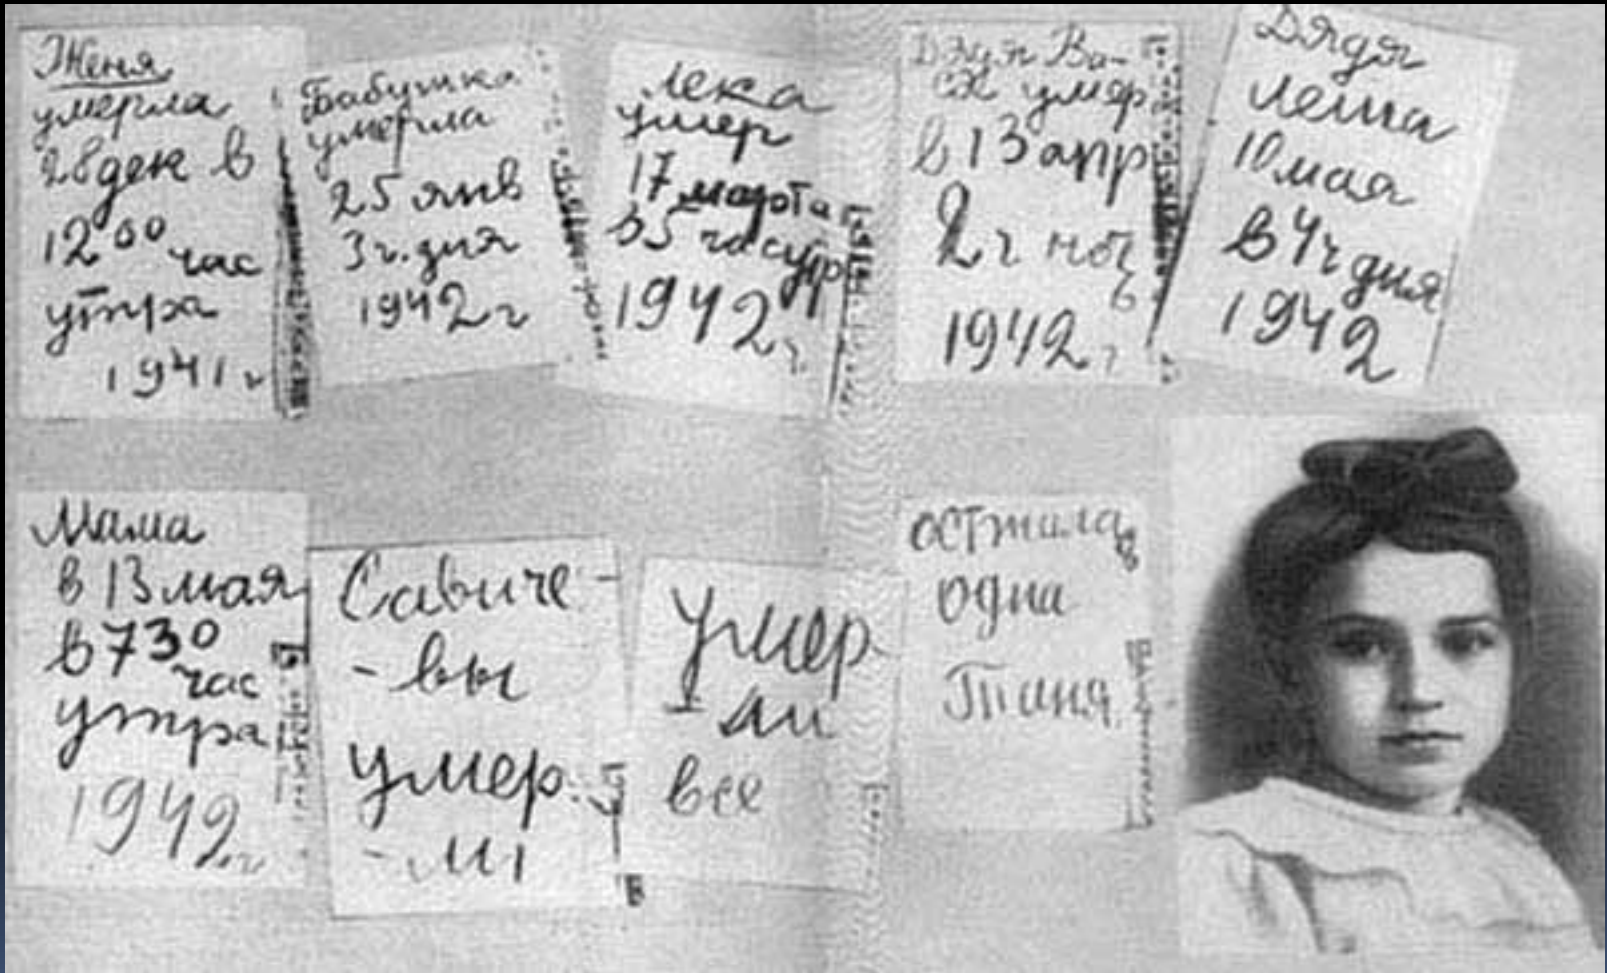 Женя
умерла
28 дек в
12 00 час
утра
1941 г
Бабушка
умерла
25 янв
3 ч. дня
1942 г
Лека
умер
17 марта
в 5 час утр
1942 г.
Дядя Ва-
ся умер
в 13 апр
2 ч ноч
1942 г
Дядя
Леша
10 мая
в 4 ч дня
1942
Мама
в 13 мая
в 7 30
час
утра
1942 г
Савиче-
-вы
умер
-ли
Умер
-ли
все
осталась
одна
Таня.